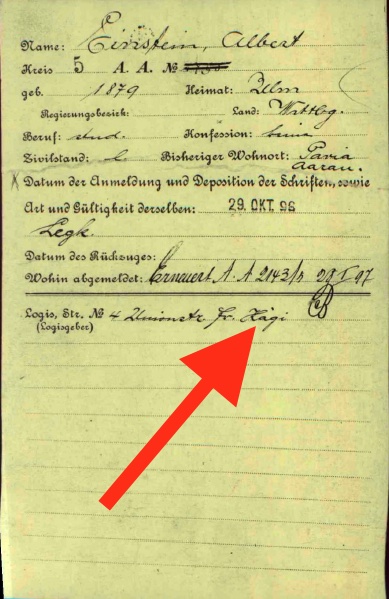 Name: Einstein, Albert
Kreis 5 A. A. №
geb. 1879 Heimat: Ulm
Regierungsbezirk: Land: Wttbg.
Beruf: stud. Konfession: keine
Zivilstand: l. Bisheriger Wohnort: Pavia
Aarau.
X Datum der Anmeldung und Deposition der Schriften, sowie
Art und Gültigkeit derselben: 29. OKT. 96
Legk.
Datum des Rückzuges:
Wohin abgemeldet: Erneuert A. A 2143/3 29 I 97
Logis, Str. № 4 Unionstr. Fr. Hägi
(Logisgeber)